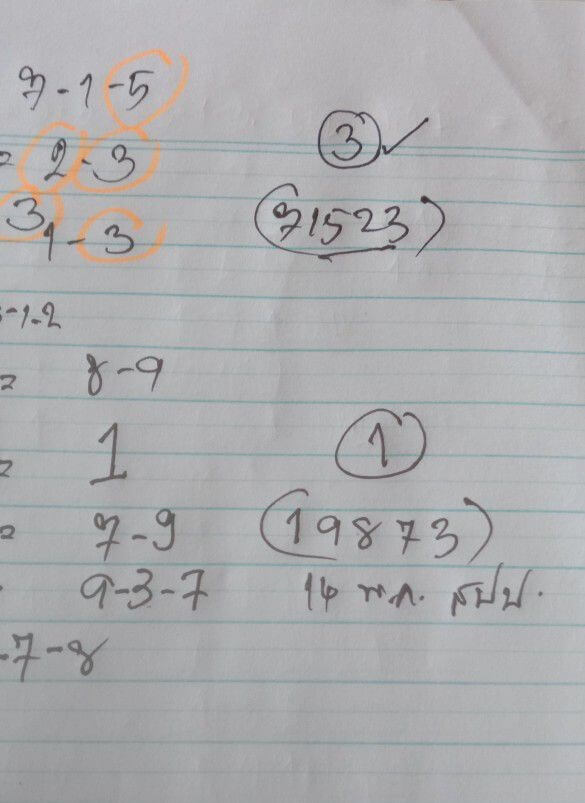 7-1-5
③ ✓
= 2-3
(71523)
3 1-3
-1-2
= 8-9
= 1
①
= 7-9
(19873)
9-3-7
14 พ.ค. สปป.
-7-8